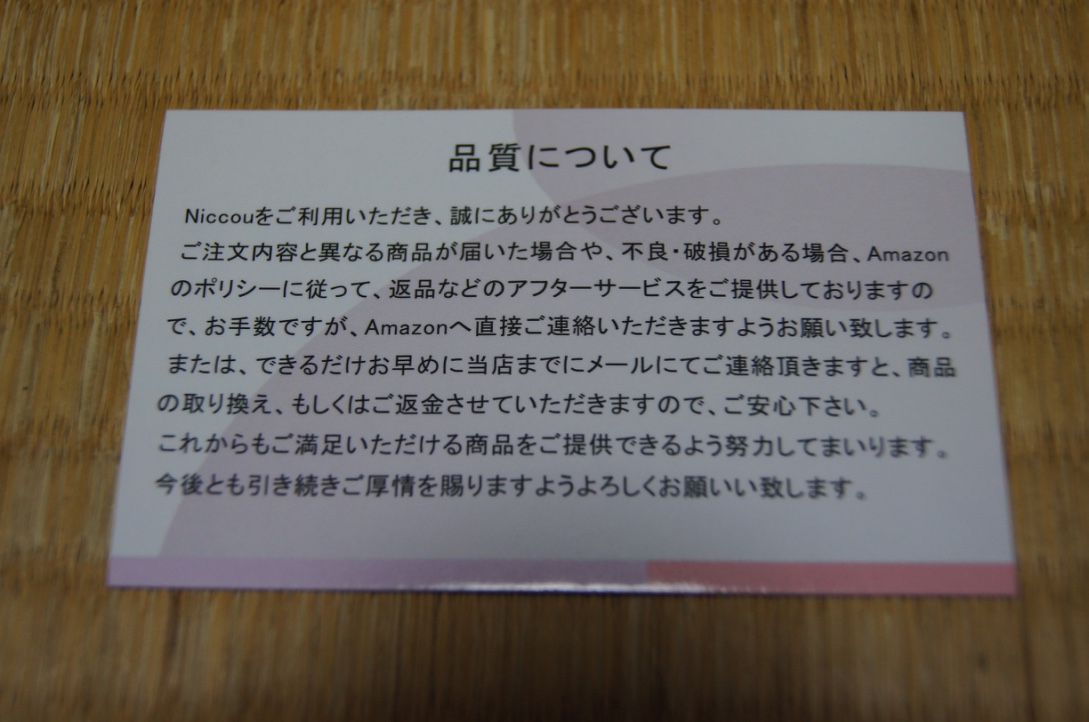 品質について
Niccouをご利用いただき、誠にありがとうございます。
ご注文内容と異なる商品が届いた場合や、不良・破損がある場合、Amazon
のポリシーに従って、返品などのアフターサービスをご提供しておりますの
で、お手数ですが、Amazonへ直接ご連絡いただきますようお願い致します。
または、できるだけお早めに当店までにメールにてご連絡頂きますと、商品
の取り換え、もしくはご返金させていただきますので、ご安心下さい。
これからもご満足いただける商品をご提供できるよう努力してまいります。
今後とも引き続きご厚情を賜りますようよろしくお願いい致します。